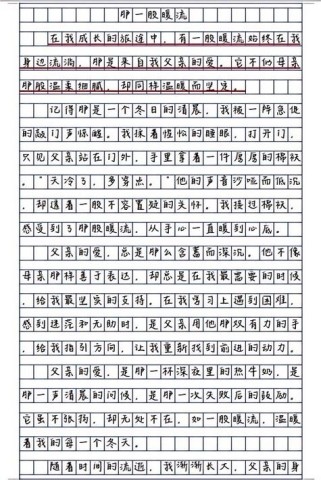 那一股暖流
在我成长的旅途中，有一股暖流始终在我
身边流淌，那是来自我父亲的爱。它不仍母亲
那般温柔细腻，却同样温暖而坚定。
记得那是一个冬日的清晨，我被一阵急促
的敲门声惊醒。我揉着惺忪的睡眼，打开门，
只见父亲站在门外，手里拿着一件厚厚的棉袄
。“天冷了，多穿点。”他的声音沙哑而低沉
，却透着一股不容置疑的关怀。我接过棉袄，
感受到了那股暖流，从手心一直暖到心底。
父亲的爱，总是那么含蓄而深沉。他不像
母亲那样善于表达，却总是在我最需要的时候
，给我最坚实的支持。在我学习上遇到困难，
感到迷茫和无助时，是父亲用他那双有力的手
，给我指引方向，让我重新找到前进的动力。
父亲的爱，是那一杯深夜里的热牛奶，是
那一声清晨的问候，是那一次失败后的鼓励。
它虽不张狗，却无处不在，如一股暖流，温暖
着我的每一个冬天。
随着时间的流逝，我渐渐长大，父亲的身